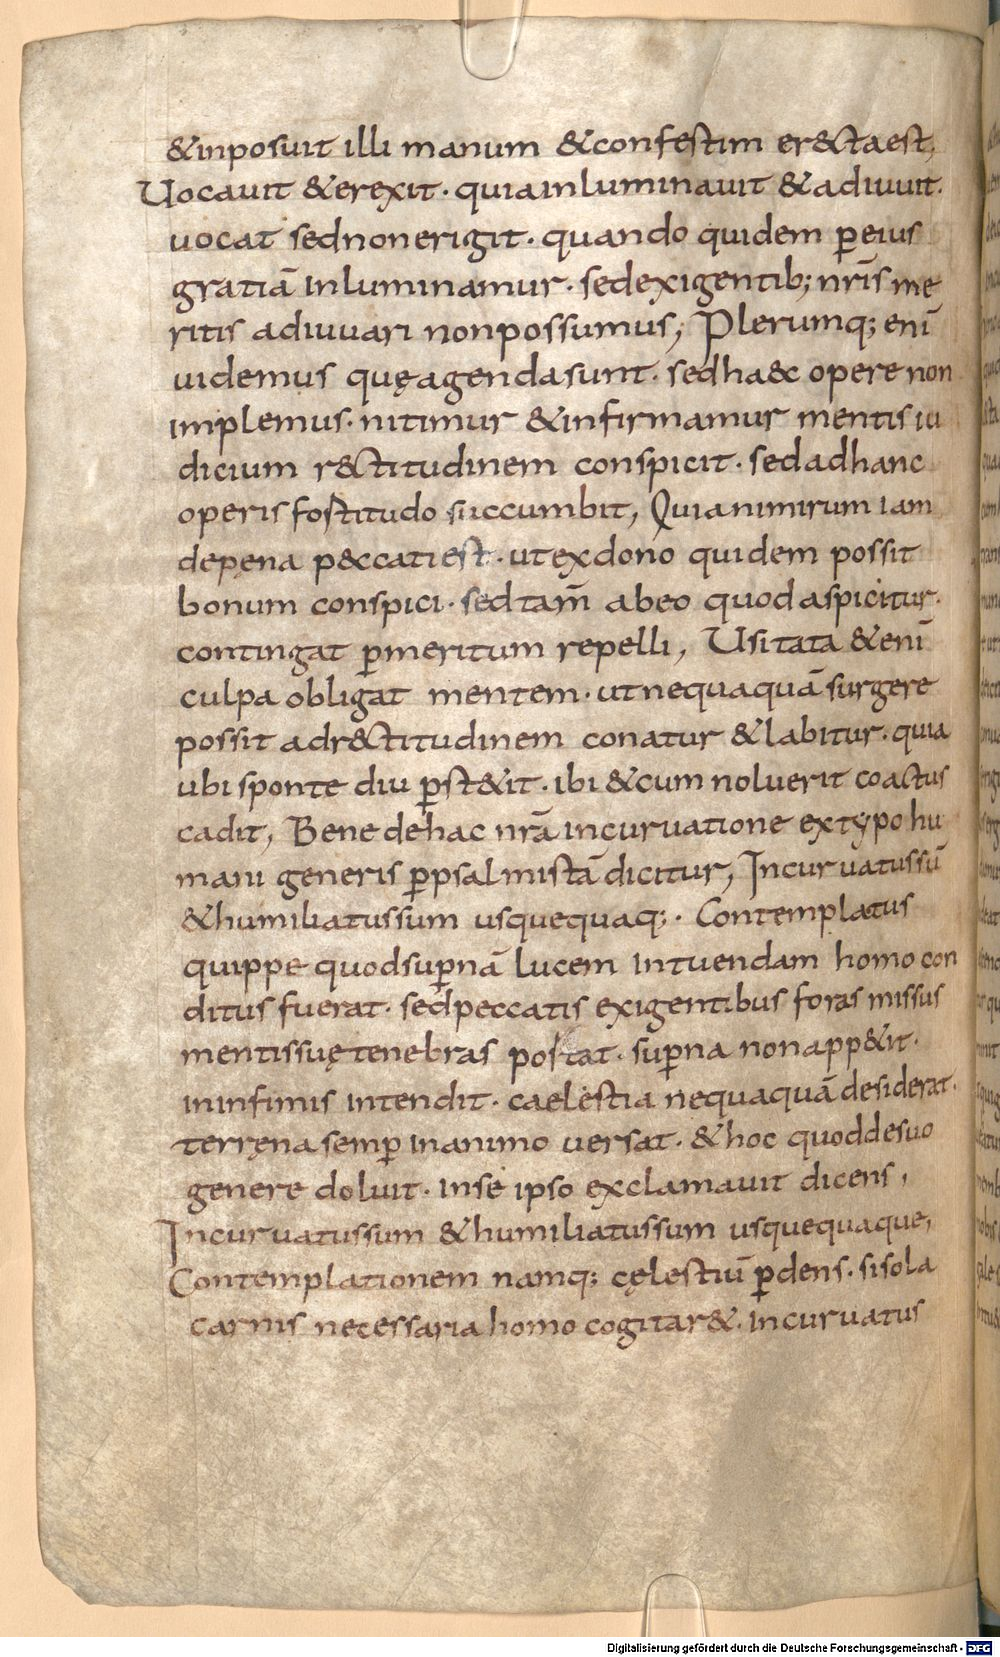 &inposuit illi manum &confestim er&ctaest,
Uocauit &erexit · quiainluminauit &adiuuit·
uocat sednonerigit · quando quidem p̄eius
gratiā inluminamur · sedexigentib; nr̄is me
ritis adiuuari nonpossumus, Plerumq; enī
uidemus quęagendasunt · sedha&c opere non
implemus · nitimur &infirmamur mentis iu
dicium r&ctitudinem conspicit · sedadhanc
operis fostitudo succumbit, Quianimirum iam
depęna p&ccatiest · utexdono quidem possit
bonum conspici · sedtam̄ abeo quodaspicitur·
contingat p̄meritum repelli, Usitata &enī
culpa obligat mentem · utnequaquā surgere
possit adr&ctitudinem conatur &labitur · quia
ubi sponte diu p̄st&it · ibi &cum noluerit coactus
cadit, Bene dehac nr̄a incuruatione extẏpo hu
mani generis p̄psalmistā dicitur, Incuruatussū
&humiliatussum usquequaq; · Contemplatus
quippe quodsup̄nā lucem intuendam homo con
ditus fuerat · sedpeccatis exigentibus foras missus
mentissuętenebras postat · sup̄na nonapp&it·
ininfimis intendit · caelestia nequaquā desiderat·
terręna semp̄ inanimo uersat · &hoc quoddesuo
genere doluit · inse ipso exclamauit dicens,
Incuruatussum &humiliatussum usquequaque,
Contemplationem namq; cęlestiū p̄dens · sisola
carnis necessaria homo cogitar& · incuruatus
Digitalisierung gefördert durch die Deutsche Forschungsgemeinschaft - DFG